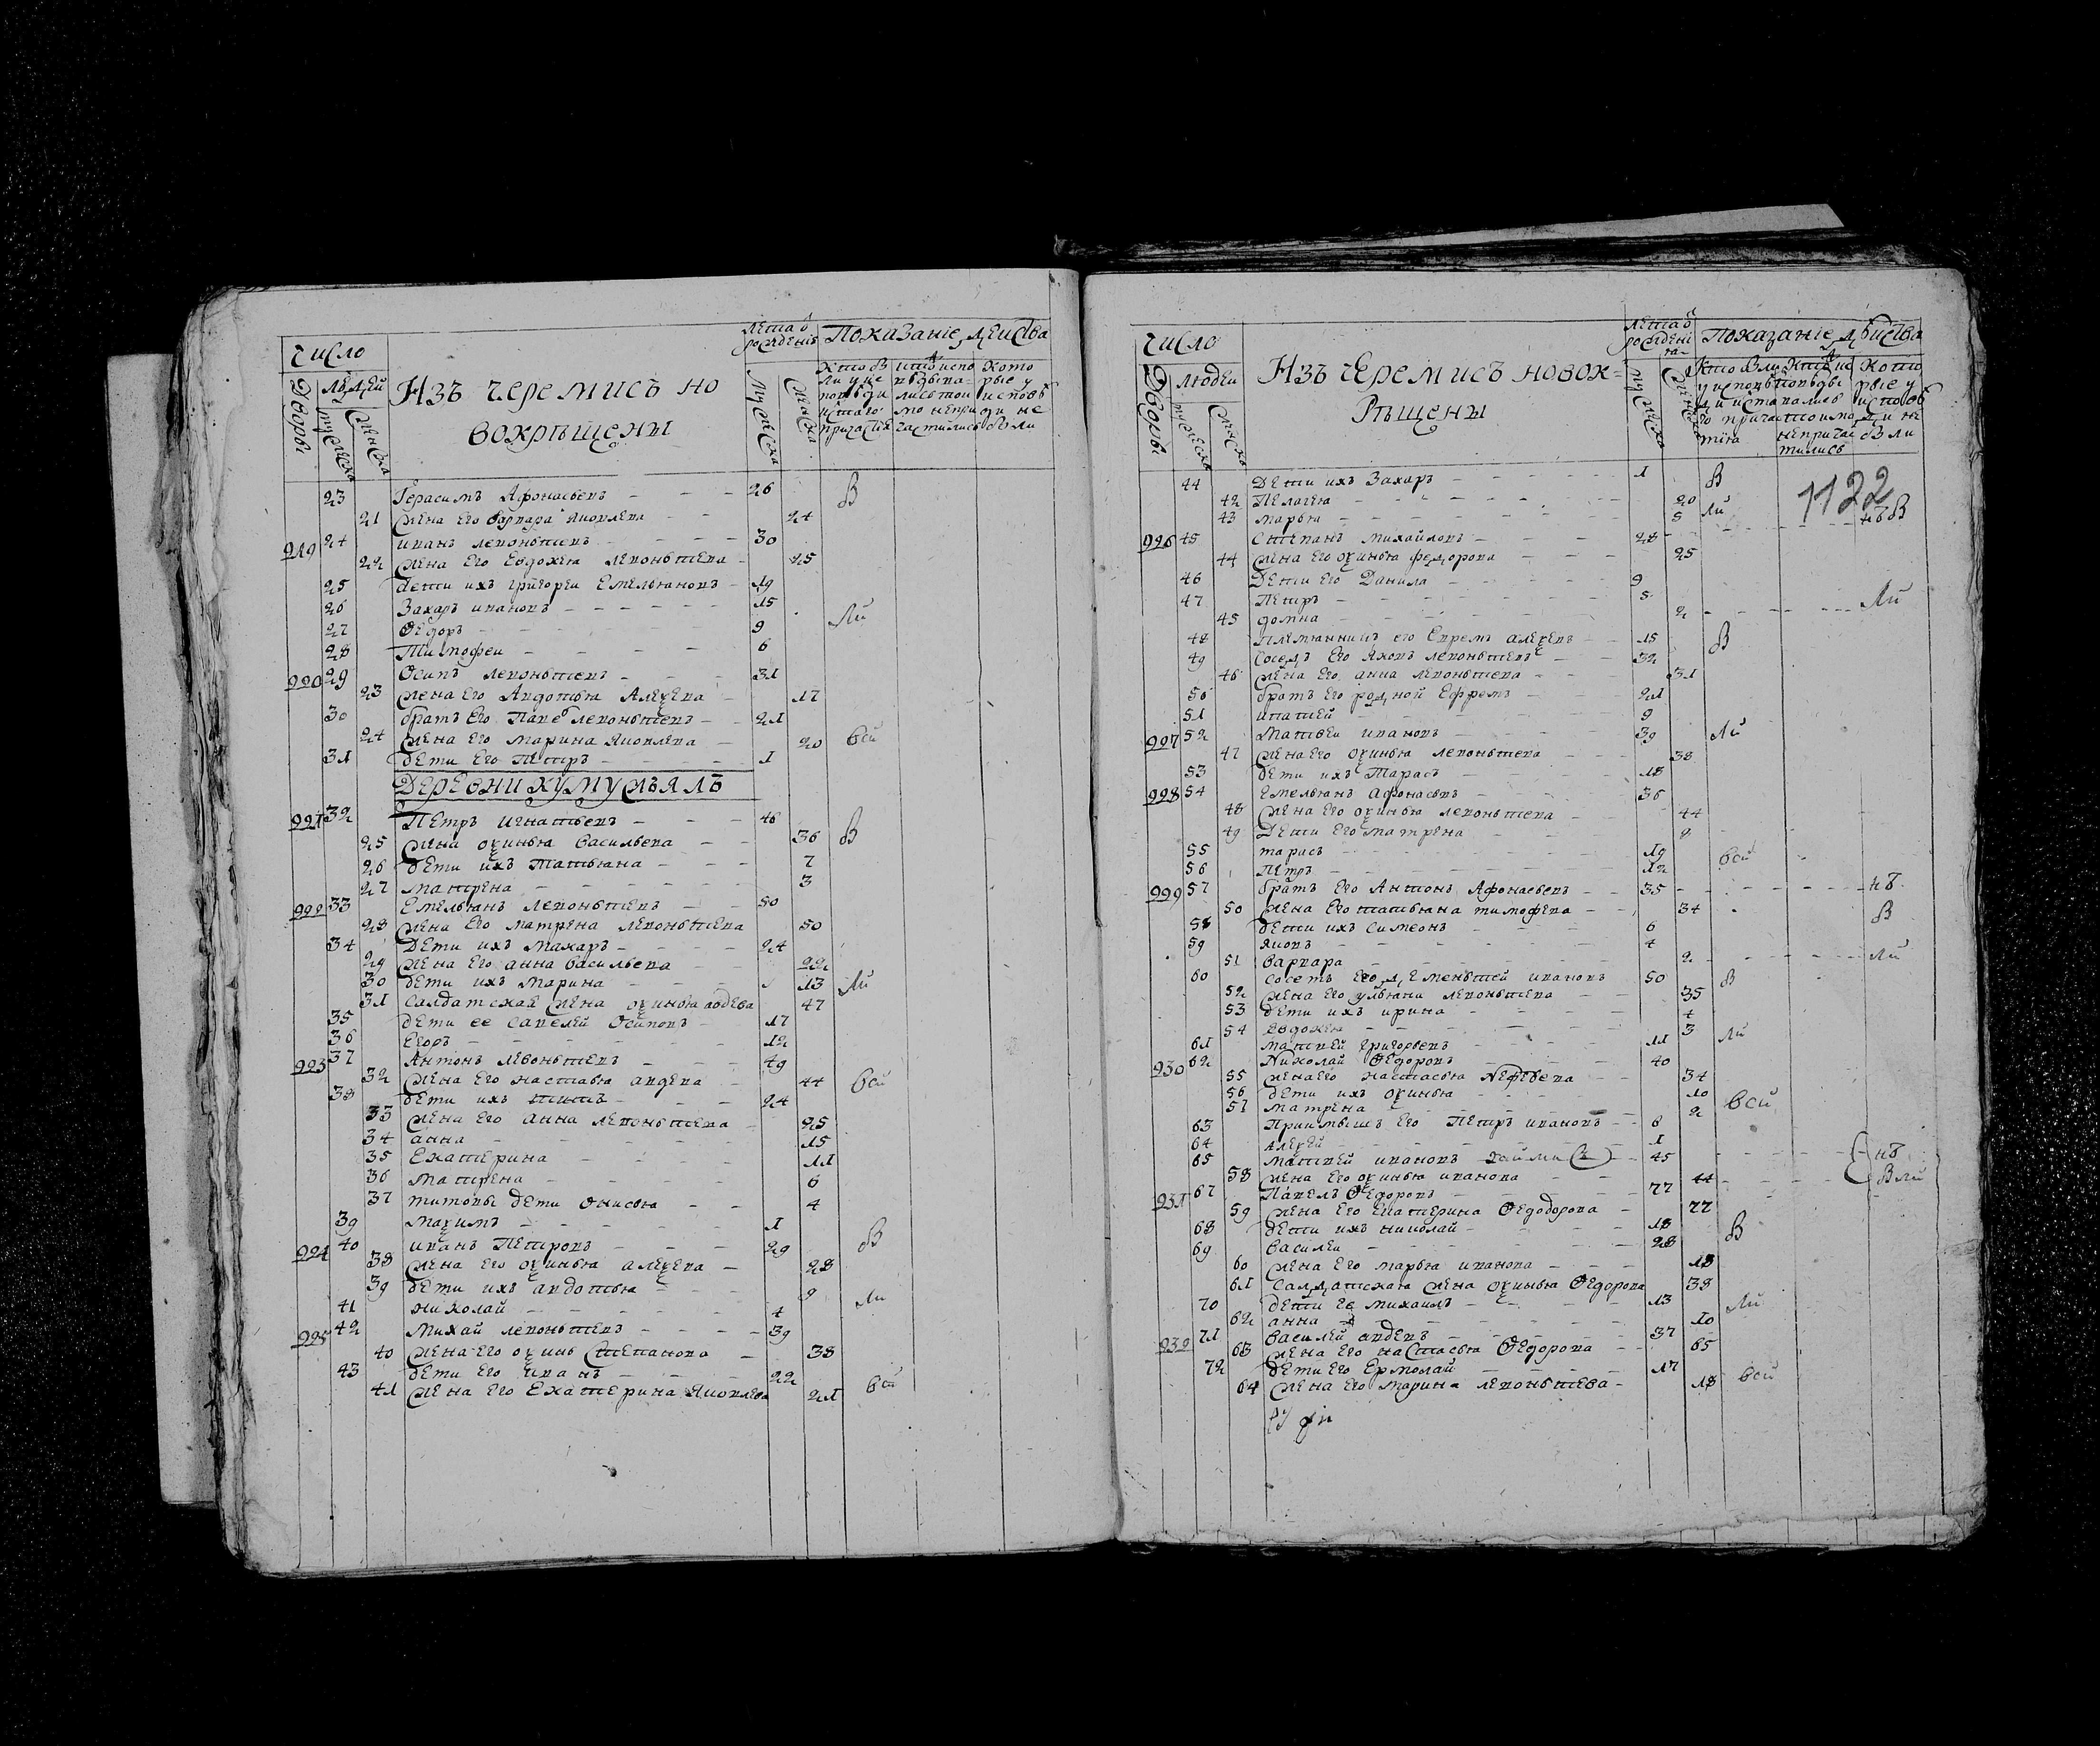 число
людей
Дворы
мужеска
женска
Изъ черемисъ но
вокрѣщены
лета ѿ
рождения
мужеска
женска
Показание действа
23 Герасимъ Афонасьевъ 26 В
21 жена его варвара Яковлева 24
919 24 иванъ леоньтьевъ 30
22 жена его Евдокея леоньтьева 25
25 Дети ихъ григореи Емельяновъ 19
26 Захаръ ивановъ 15
27 Ѳедоръ 9 ли
28 Тимофеи 6
920 29 Осипъ леонтьевъ 31
23 жена его Авдотья Алеѯева 17
30 братъ его Паве леонтьевъ 21
24 жена его марина Яковлева 20 вси
31 дети его Петръ 1
ДЕРЕВНИ КУМУЖЪЯЛЪ
921 32 Петръ игнатьевъ 46
25 жена оѯинья васильева 36 В
26 дети ихъ татьяна 7
27 матрена 3
922 33 Емельянъ леонтьевъ 50
28 жена его матрена леонтьева 50
34 Дети ихъ макаръ 24
29 жена его анна васильева 22
30 дети ихъ марина 13 ли
31 салдатская жена оѯинья авдева 47
35 дети ее савелей осиповъ 17
36 егоръ 12
923 37 Антонъ левонтьевъ 49
32 жена его настасья авдева 44 вси
38 дети ихъ титъ 24
33 жена его анна леонтьева 25
34 анна 15
35 Екатерина 11
36 матрена 6
37 титовы дети онисья 4
39 маѯимъ 1
924 40 иванъ Петровъ 29 В
38 жена его оѯинья алеѯева 28
39 дети ихъ авдотья 9
41 николай 4 ли
925 42 Михай леонтьевъ 39
40 жена его оѯинь Степанова 38
43 дети его иванъ 22
41 жена его Екатерина Яковлева 21 вси
число
людеи
Дворы
мужеска
женска
Изъ черемисъ новок-
рѣщены
лета ѿ
рождени
мужеска
женска
Показание действа
1122
44 Дети ихъ Захаръ 1 В
42 Пелагея 20
43 марья 5 ли
926 45 Степанъ михайловъ 28 нѣ В
44 жена его оѯинья федорова 25
46 Дети его Данила 9
47 Петръ 5
45 домна 2 ли
48 Племянницъ его Ефремъ алеѯевъ 15 В
49 Соседъ его Яковъ леонтьевъ 32
46 жена его анна леонтьева 31
50 братъ его родной Ефремъ 21
51 ипатей 9
927 52 Матвеи ивановъ 39 ли
47 жена его оѯинья леонтьева 38
53 дети ихъ Тарасъ 18
928 54 Емельянъ Афонасьвъ 36
48 жена его оѯинья леонтьева 44
49 Дети его матрена 8
55 тарасъ 19 вси
56 Петръ 12
929 57 братъ его Антонъ Афонасьевъ 35 нѣ
50 жена его татьяна тимофева 34 В
58 дети ихъ симеонъ 6
59 Яковъ 4
51 варвара 2 ли
60 сосетъ его дементей ивановъ 50 В
52 жена его ульяна леонтьева 35
53 дети ихъ ирина 4
54 Евдокея 3
61 матвей григорьевъ 11 ли
930 62 Николай Ѳедоровъ 40
55 жена его настасья Нефедева 34
56 дети ихъ оѯинья 10
57 матрена 2 вси
63 Приимышъ его Петръ ивановъ 6
64 алеѯей 1
65 матвей ивановъ 45 нѣ
58 жена его оѯинья иванова 44 В ли
931 67 Павелъ Ѳедоровъ 77
59 жена его Екатерина Ѳедодорова 77
68 дети ихъ николай 18 В
69 василеи 28
60 жена его марья иванова 18
61 Салдатская жена оѯинья Ѳедорова 38
70 дети ее михаилъ 13
62 анна 10 ли
932 71 василей авдевъ 37
63 жена его настасья Ѳедорова 65
72 дети его Ермолай 17
64 жена его марина леонтьева 18 вси